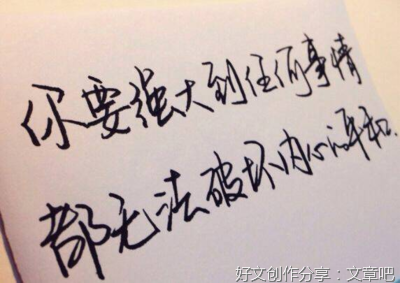 你要强大到任何事情
都无法破坏内心的平和.
好文创作分享：文章吧